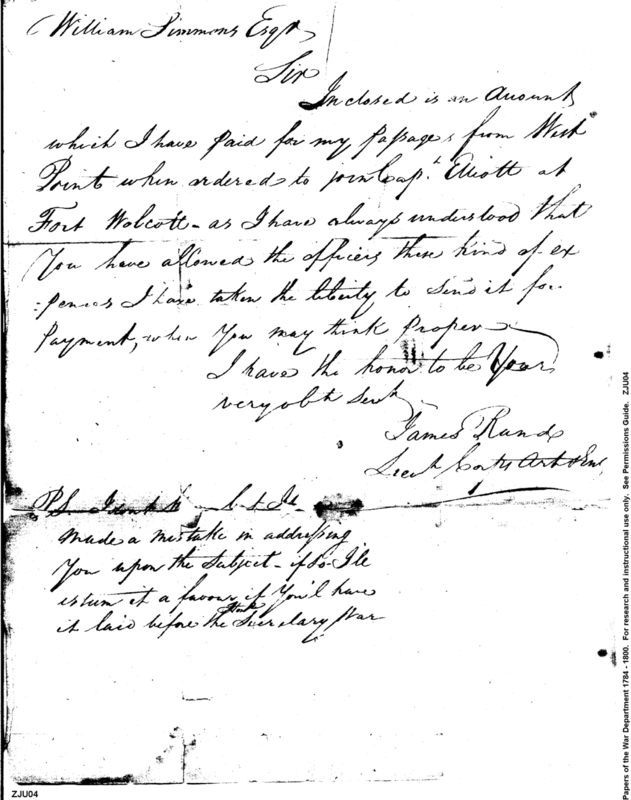 William Simmons Esqr
Sir
Inclosed is an Account
which I have paid for my passage from West
Point when ordered to join Capt. Elliott at
Fort Wolcott - as I have always understood that
You have allowed the officers these kind of ex
:pences I have taken the liberty to send it for
Payment, when You may think proper
I have the honor to be Your
very obt Servt
James Rand
Lieut Corps Art & Eng
PS I
made a mistake in addressing
You upon the Subject - if So I'le
esteem it a favour if You'l have
it laid before the Secretary War
ZJU04
Papers of the War Department 1784 - 1800. For research and instructional use only. See Permissions Guide. ZJU04